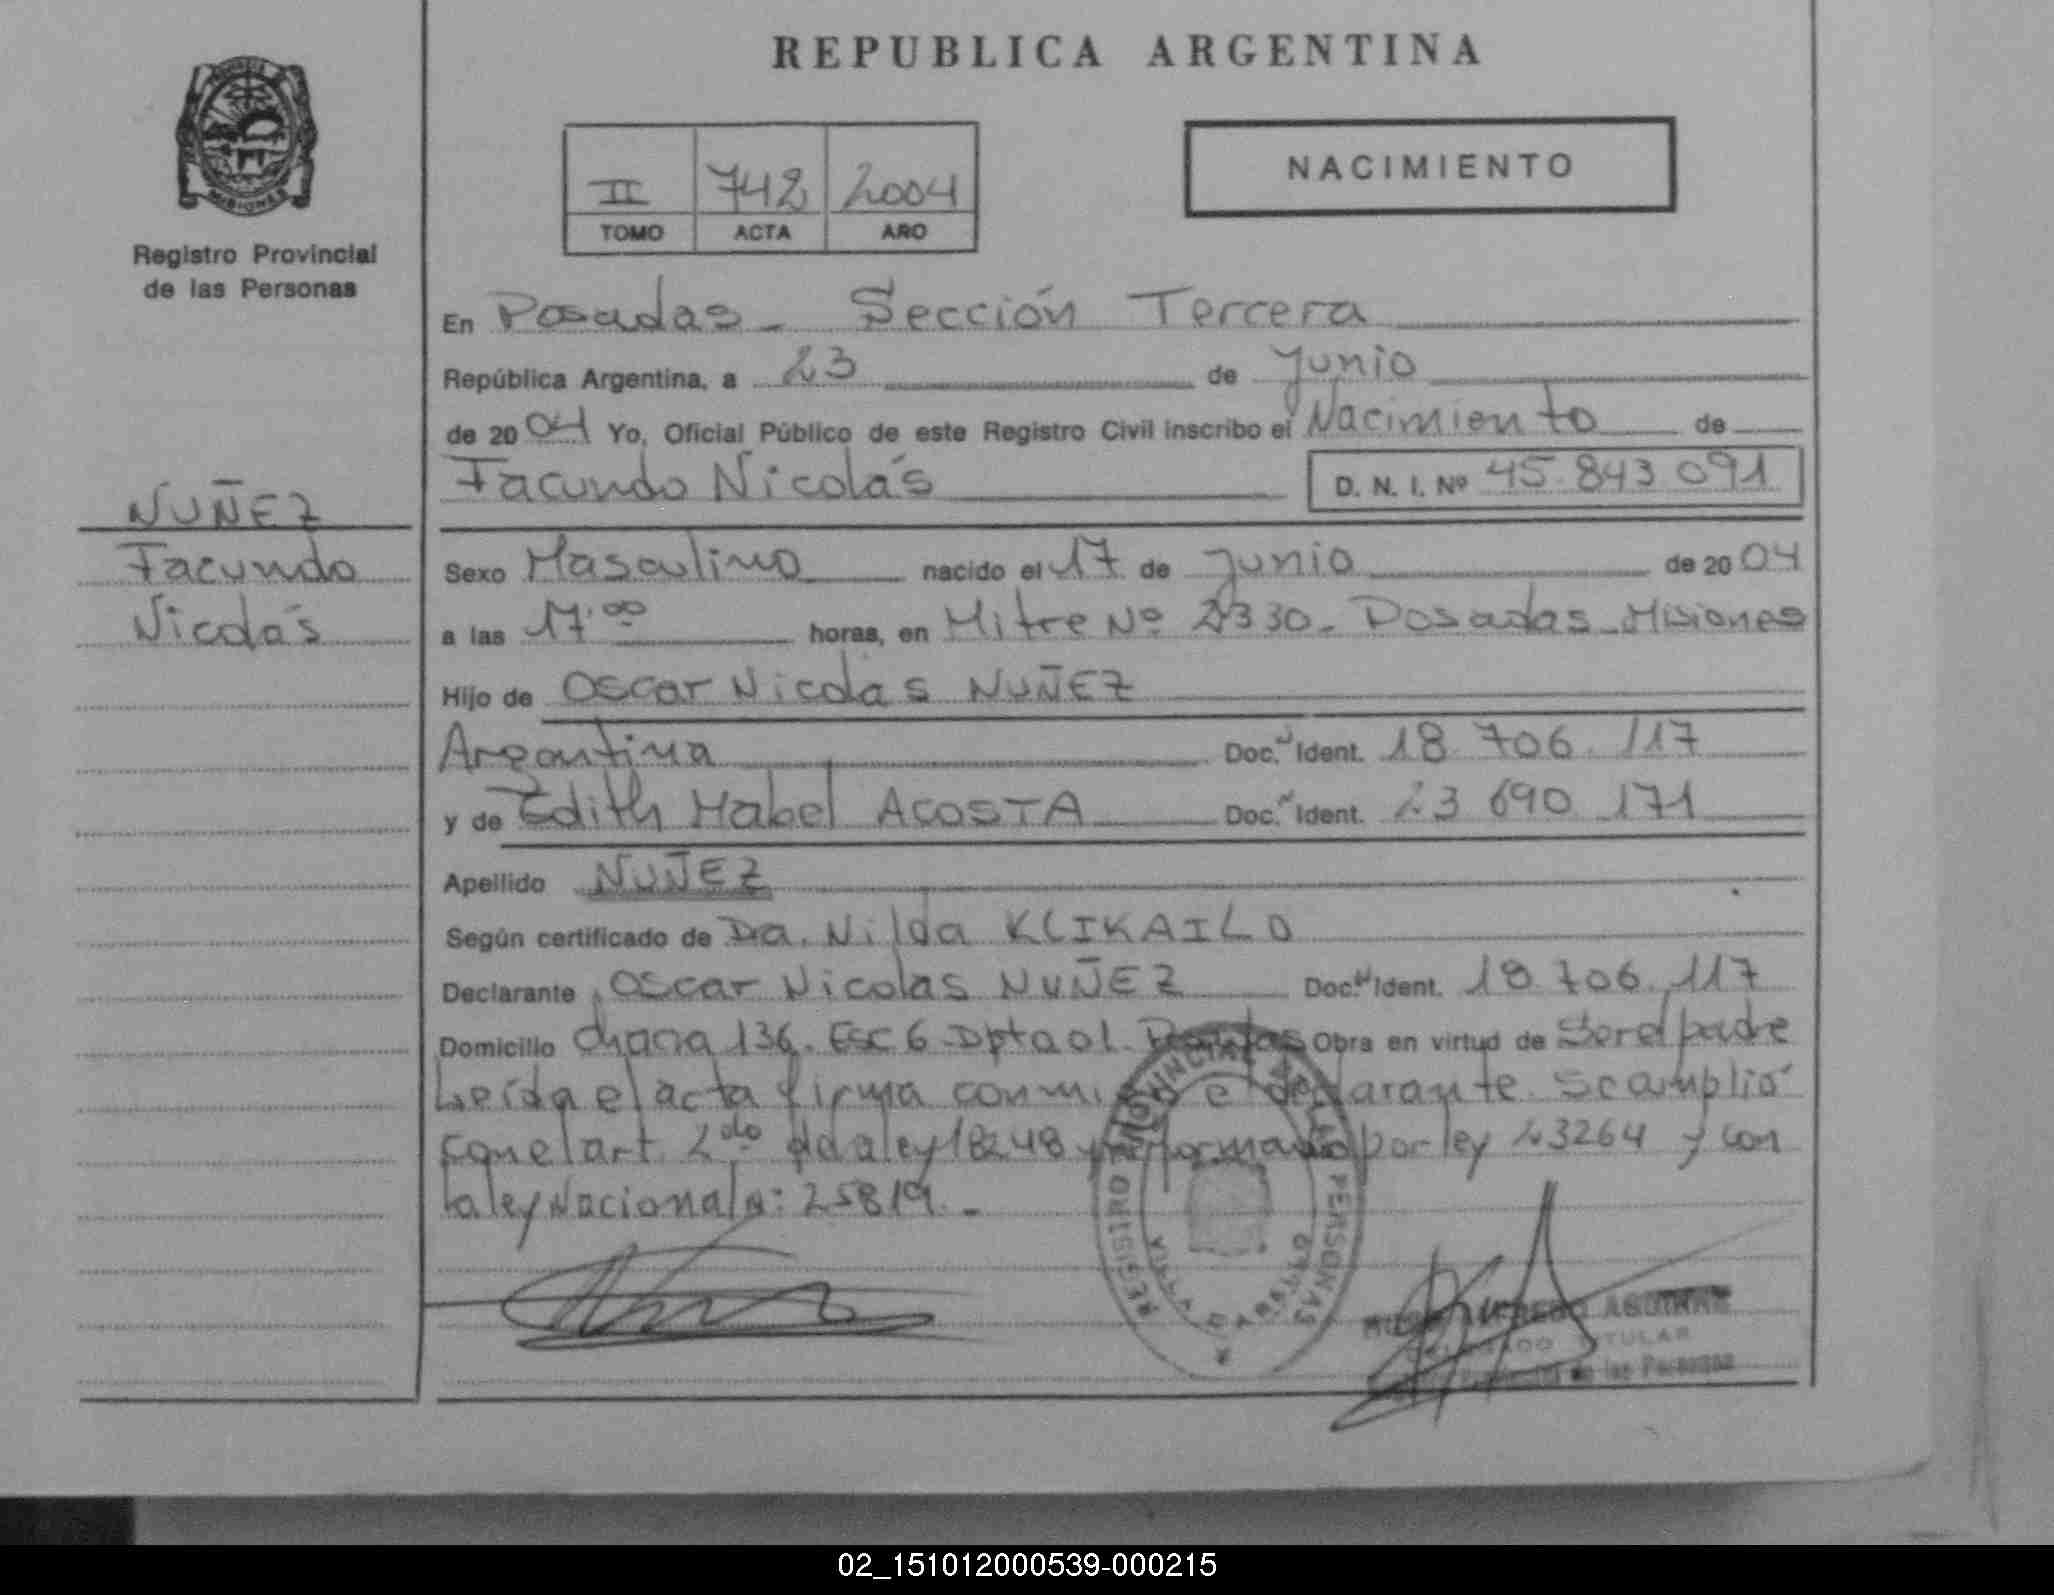 REPUBLICA ARGENTINA
MISIONES
Registro Provincial
de las Personas
II 742 2004
TOMO ACTA AÑO
NACIMIENTO
En Posadas - Sección Tercera
República Argentina, a 23 de Junio
de 2004 Yo, Oficial Público de este Registro Civil inscribo el Nacimiento de
Facundo Nicolás D. N. I. Nº 45.843 091
NUÑEZ
Facundo
Nicolás
Sexo Masculino nacido el 17 de Junio de 2004
a las 17:00 horas, en Mitre Nº 2330 - Posadas - Misiones
Hijo de Oscar Nicolas NUÑEZ
Argentina Doc. Ident. 18 706 117
y de Edith Mabel ACOSTA Doc. Ident. 23 690 171
Apellido NUÑEZ
Según certificado de Dra. Nilda KLIKAILO
Declarante Oscar Nicolas NUÑEZ Doc. Ident. 18.706.117
Domicilio chacra 136. Esc 6 Dpto 01. Posadas Obra en virtud de Ser el padre
Leída el acta firma conmigo el declarante. Se cumplió
con el art. 2do de la ley 18248 y reformado por ley 23264 y con
la ley Nacional N: 25819. -
REGISTRO PROVINCIAL DE LAS PERSONAS
VILLA CABELLO
AGUIRRE
DELEGADO TITULAR
de las Personas
02_151012000539-000215